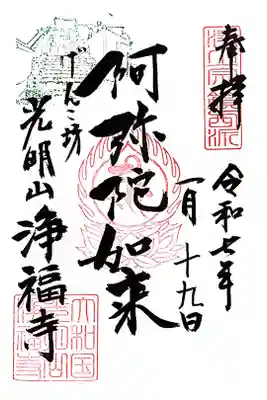 奉拝
令和七年
一月十九日
阿弥陀如来
げんこ坊
光明山
浄福寺